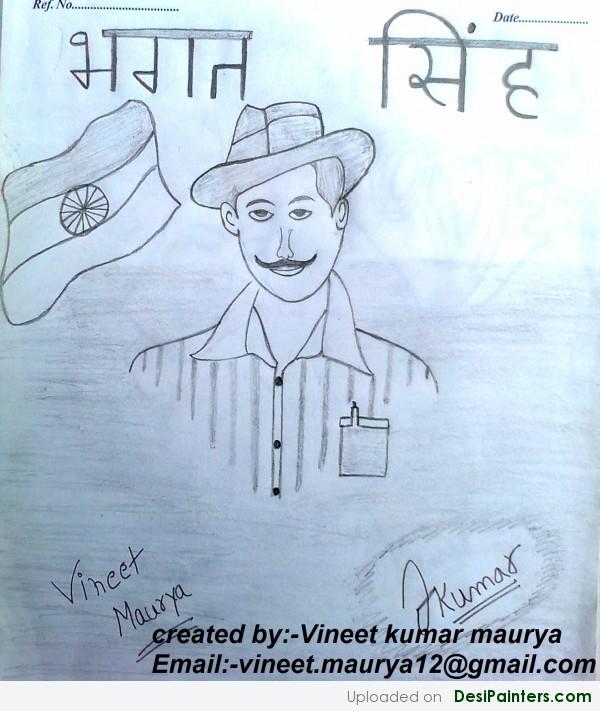 Ref. No..............................
Date.....................
भगत सिंह
Vineet
Maurya
JKumar
created by:-Vineet kumar maurya
Email:-vineet.maurya12@gmail.com
Uploaded on DesiPainters.com